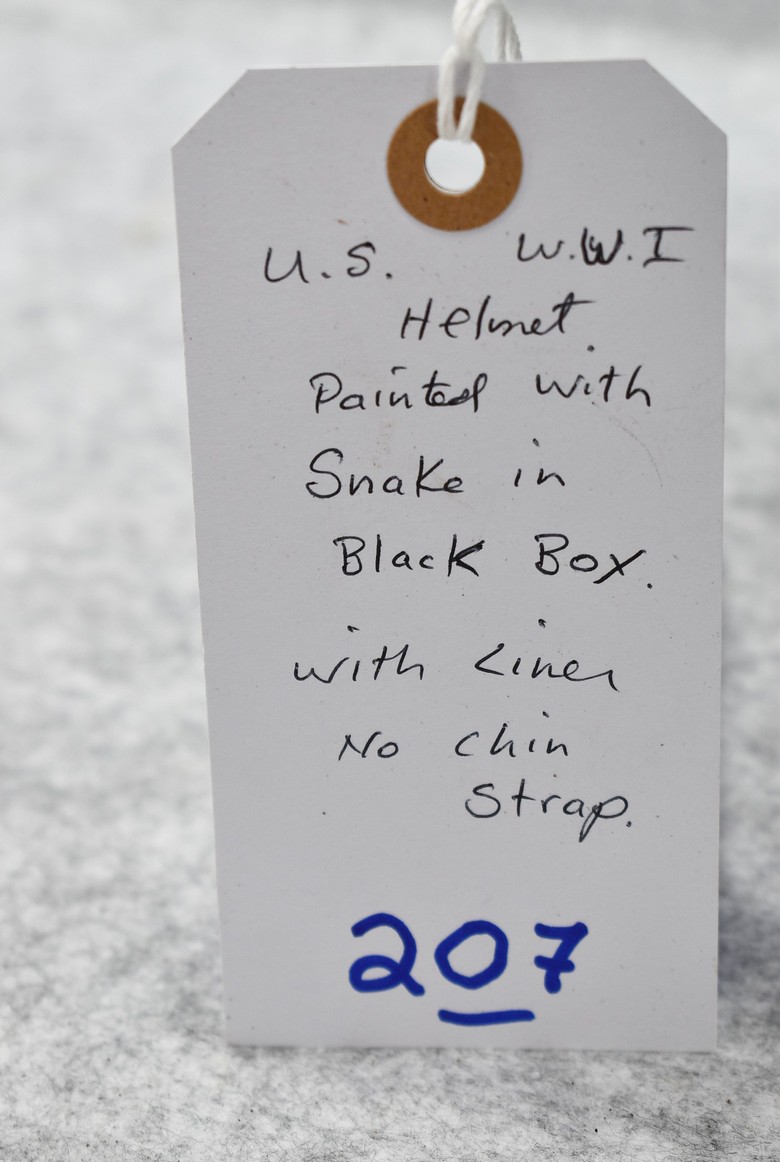 U.S. W.W.I
Helmet.
Painted with
Snake in
Black Box.
with Liner
No chin
Strap.
207